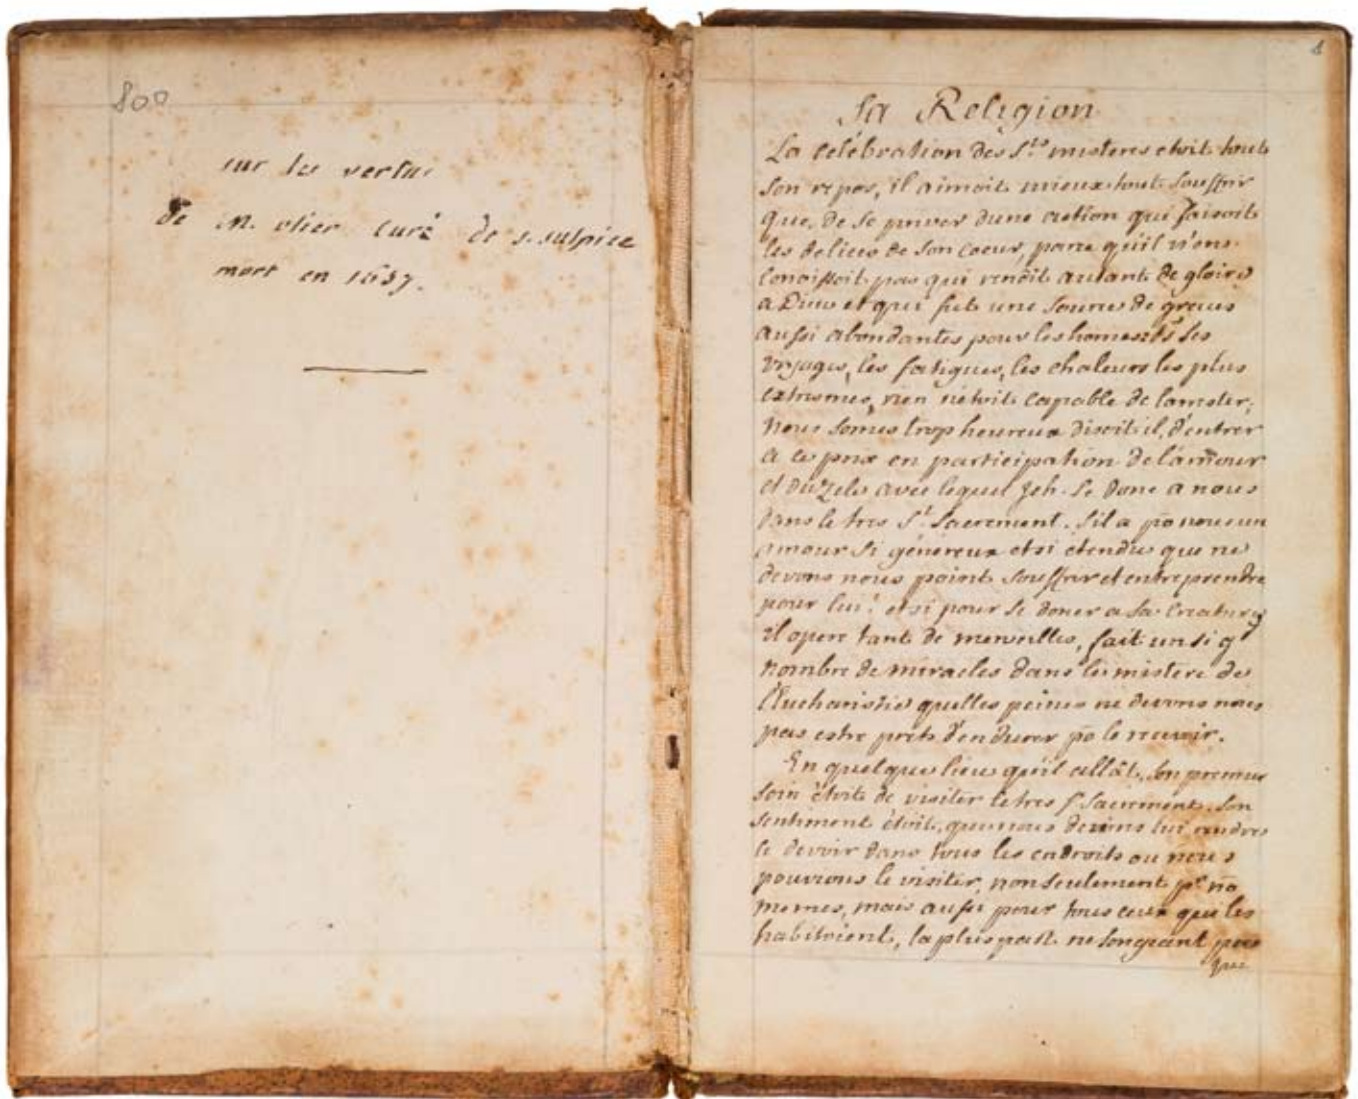 800
sur les vertus
de M. olier curé de s. sulpice
mort en 1657.
1
Sa Religion
La celébration des Sts. misteres etoit tout
son repos, il aimoit mieux tout souffrir
que de se priver dune action qui faisoit
les delices de son coeur, parce qu'il n'en
conoissoit pas qui rendit autant de gloire
a Dieu et qui fut une source de graces
aussi abondantes pour les homes. ses
voyages, les fatigues, les chaleurs les plus
extremes, rien n'etoit capable de larreter;
nous somes trop heureux disoit il, d'entrer
a ce prix en participation de l'amour
et du zele avec lequel Jch. se done a nous
dans le tres St. Sacrement. s'il a po nous un
amour si généreux et si etendu que ne
devons nous point souffrir et entreprendre
pour lui! et si pour se doner a sa creature
il opere tant de merveilles, fait un si g
nombre de miracles dans le mistere de
l'Eucharistie quelles peines ne devons nous
pas estre prets d'endurer po le recevoir.
En quelque lieu qu'il allât, son premier
soin étoit de visiter le tres St Sacrement. son
sentiment étoit, que nous devions lui rendre
ce devoir dans tous les endroits ou nous
pouvions le visiter, non seulement pr no
memes, mais aussi pour tous ceux qui les
habitoient, la plus part ne songeant pas
que